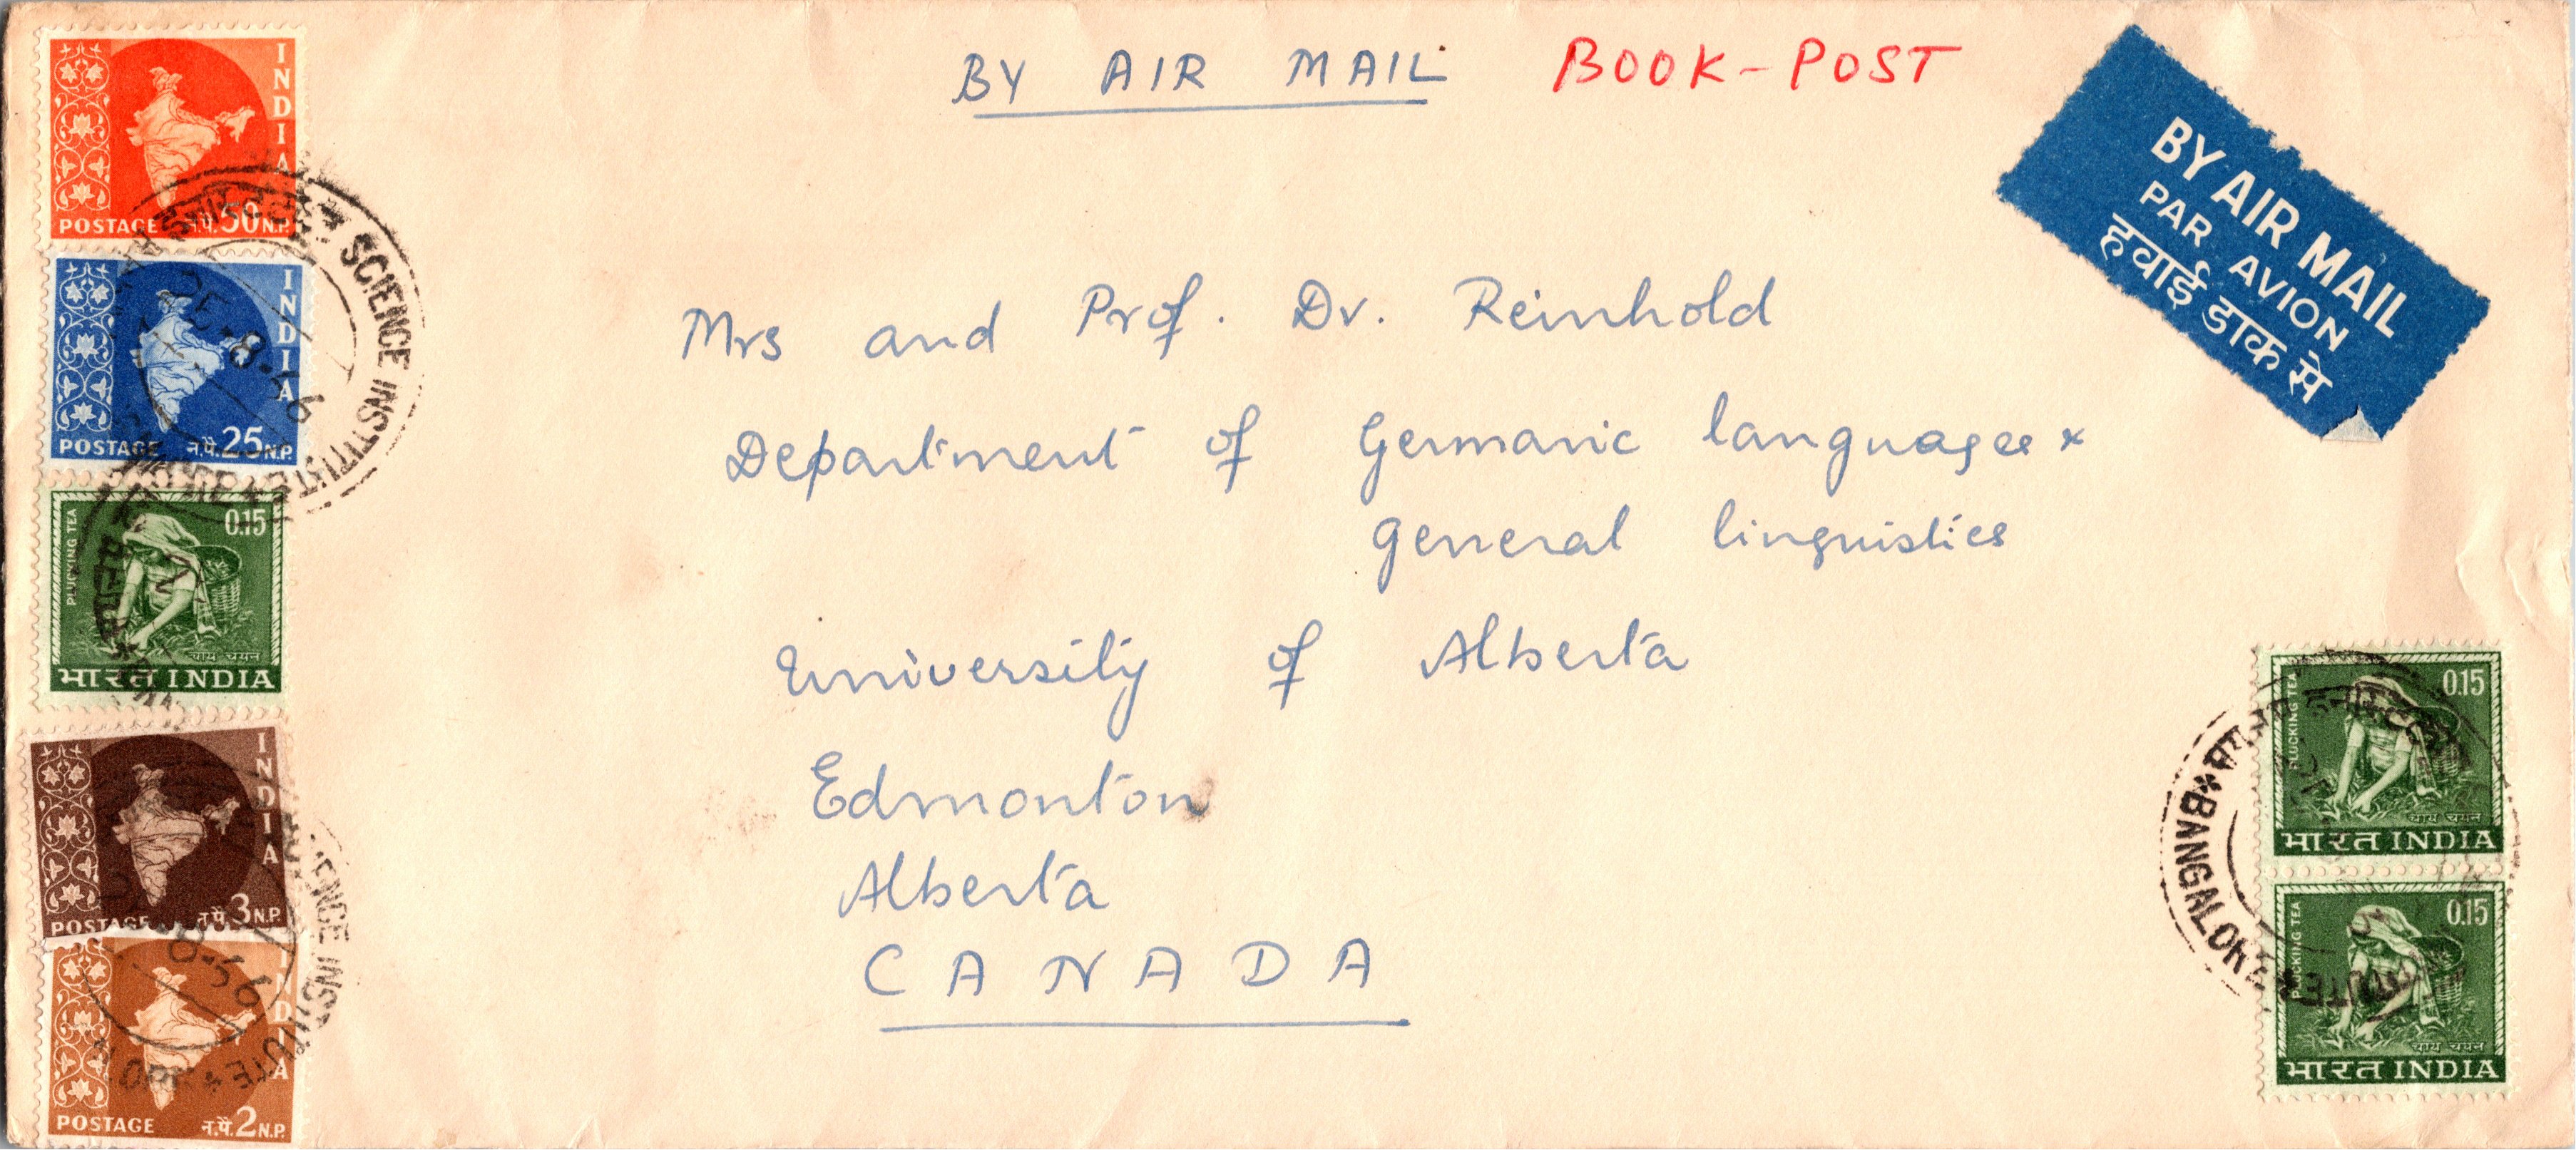 BY AIR MAIL
BOOK-POST
BY AIR MAIL
PAR AVION
हवाई डाक से
Mrs and Prof. Dr. Reinhold
Department of Germanic languages &
general linguistics
University of Alberta
Edmonton
Alberta
CANADA
INDIA
POSTAGE न.पै. 50 N.P.
INDIA
POSTAGE न.पै. 25 N.P.
SCIENCE INSTITUTE
PLUCKING TEA
0.15
चाय चयन
भारत INDIA
INDIA
POSTAGE न.पै. 3 N.P.
INDIA
POSTAGE न.पै. 2 N.P.
PLUCKING TEA
0.15
चाय चयन
भारत INDIA
BANGALORE
PLUCKING TEA
0.15
चाय चयन
भारत INDIA